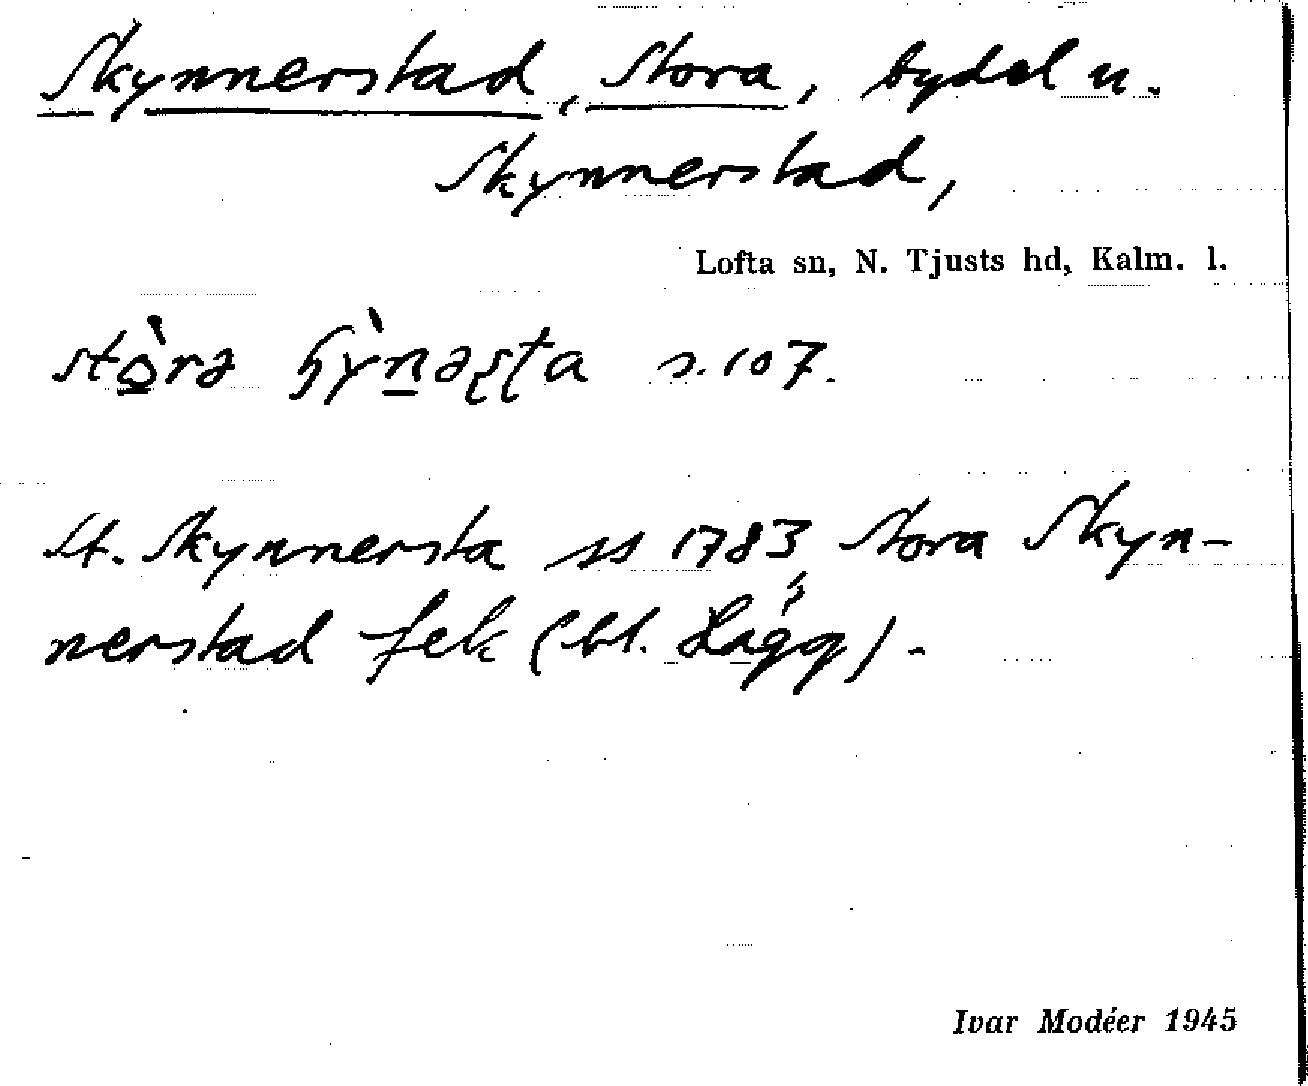 Skynnerstad, Stora, bydel u.
Skynnerstad,
Lofta sn, N. Tjusts hd, Kalm. l.
s. 107.
St. Skynnersta ss 1783, Stora Skyn-
nerstad fek (bl. Lagg).
Ivar Modéer 1945